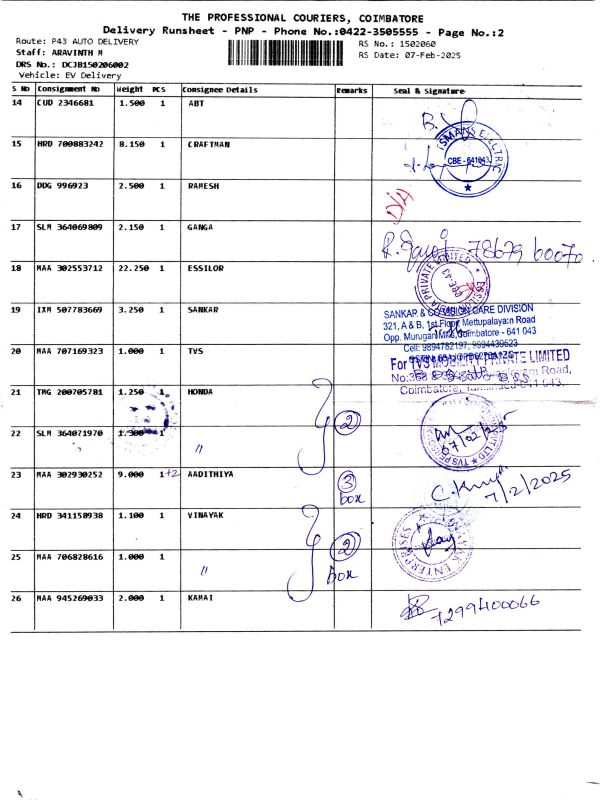 THE PROFESSIONAL COURIERS, COIMBATORE
Delivery Runsheet - PNP - Phone No.:0422-3505555 - Page No.:2
Route: P43 AUTO DELIVERY RS No.: 1502060
Staff: ARAVINTH M RS Date: 07-Feb-2025
DRS No.: DCJB150206002
Vehicle: EV Delivery
S No Consignment No Weight PCS Consignee Details Remarks Seal & Signature
14 CUD 2346681 1.500 1 ABT
ISMANS ELECTRIC
CBE - 641043
15 HRD 700883242 8.150 1 CRAFTMAN
16 DDG 996923 2.500 1 RAMESH D/A
17 SLM 364069809 2.150 1 GANGA
78679 60070
18 MAA 302553712 22.250 1 ESSILOR
PRIVATE LIMITED
CBE-43
19 IXM 507783669 3.250 1 SANKAR
SANKAR & CO VISION CARE DIVISION
321, A & B, 1st Floor, Mettupalayam Road
Opp. Murugan Mills, Coimbatore - 641 043
Cell: 9894782197, 9994430623
20 MAA 707169323 1.000 1 TVS
For TVS MOBILITY PRIVATE LIMITED
Road,
Coimbatore, Tamilnadu-641 043.
21 TMG 200705781 1.250 1 HONDA 2
22 SLM 364071970 1.300 1 〃
07/02/2025
23 MAA 302930252 9.000 1+2 AADITHIYA 3 box
7/2/2025
24 HRD 341158938 1.100 1 VINAYAK 2 box
ENTERPRISES
25 MAA 706828616 1.000 1 〃
26 MAA 945269033 2.000 1 KAMAI
7299400066